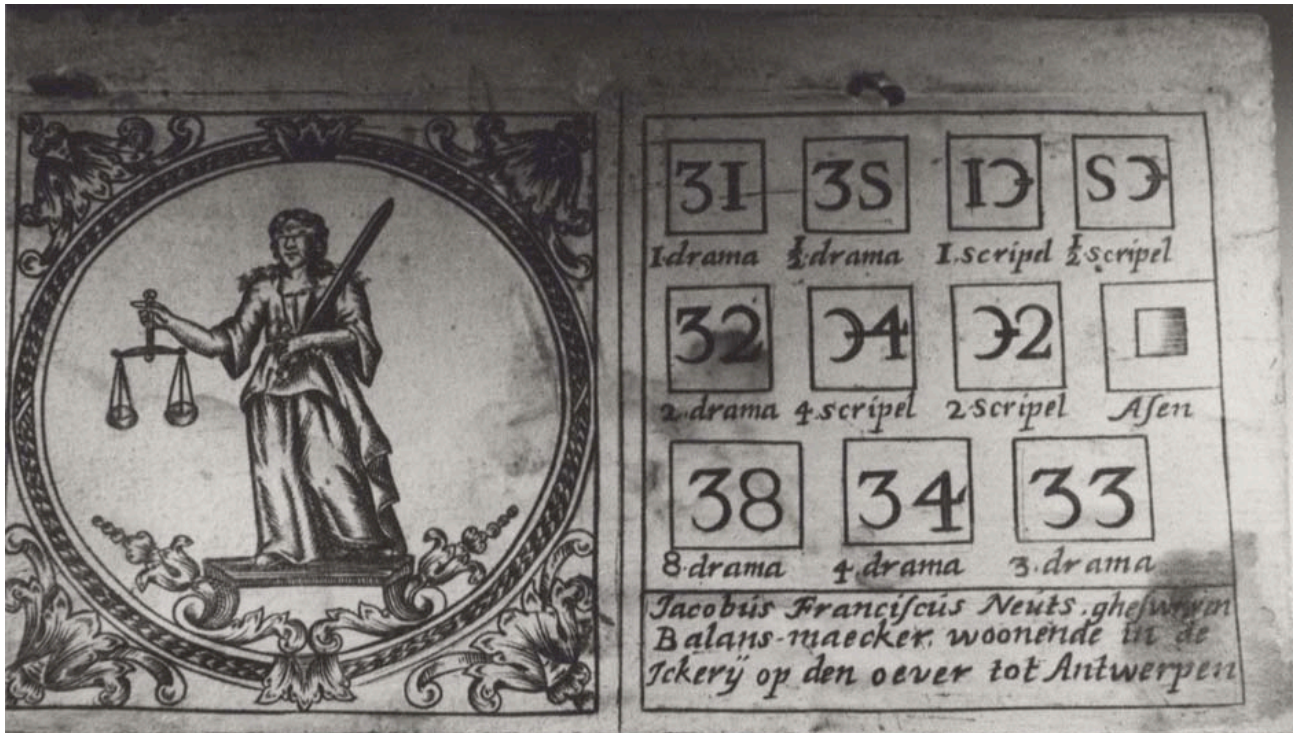 31 3S I℈ S℈
1·drama ½·drama 1.scripel ½·scripel
32 ℈4 ℈2
2·drama 4·scripel 2·Scripel Aſen
38 34 33
8·drama 4·drama 3·drama
Jacobús Franciſcús Neúts, gheſworen
Balans-maecker, woonende in de
Jckerÿ op den oever tot Antwerpen